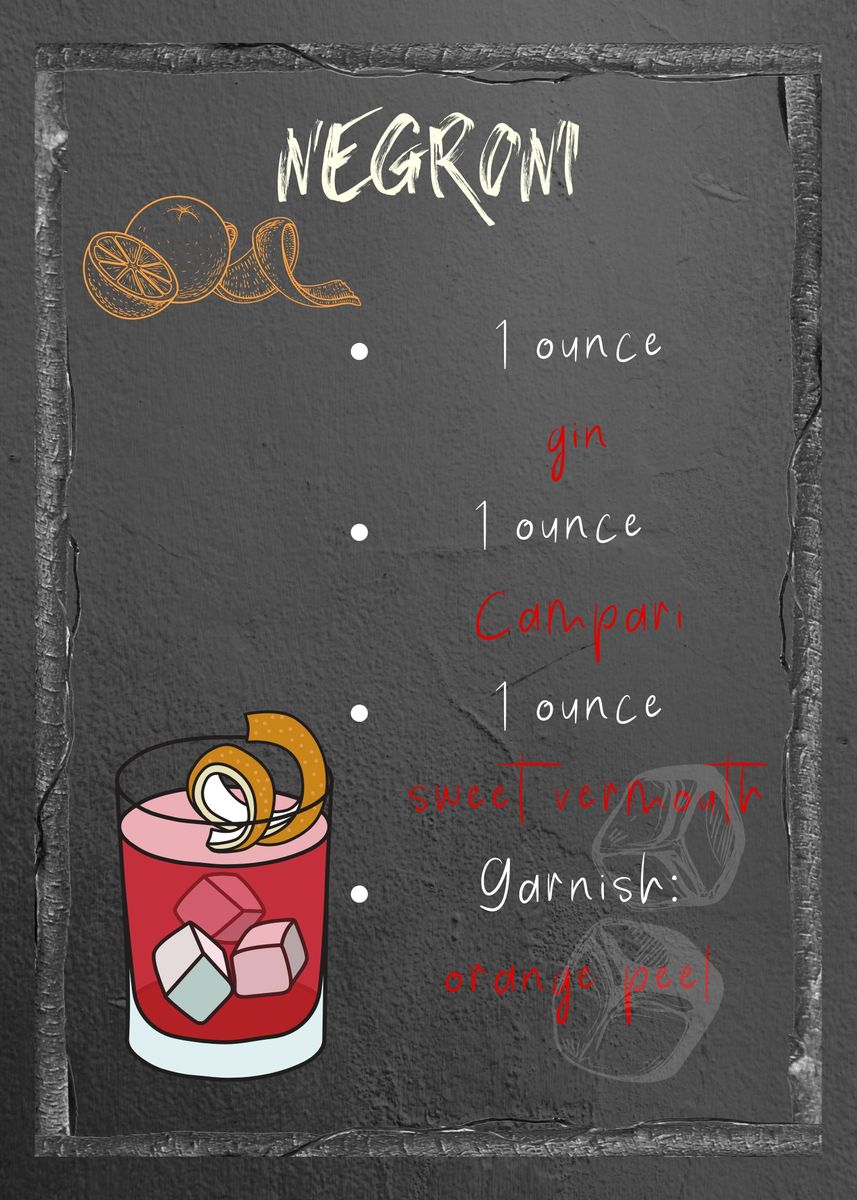 NEGRONI
• 1 ounce
gin
• 1 ounce
Campari
• 1 ounce
sweet vermouth
• Garnish:
orange peel